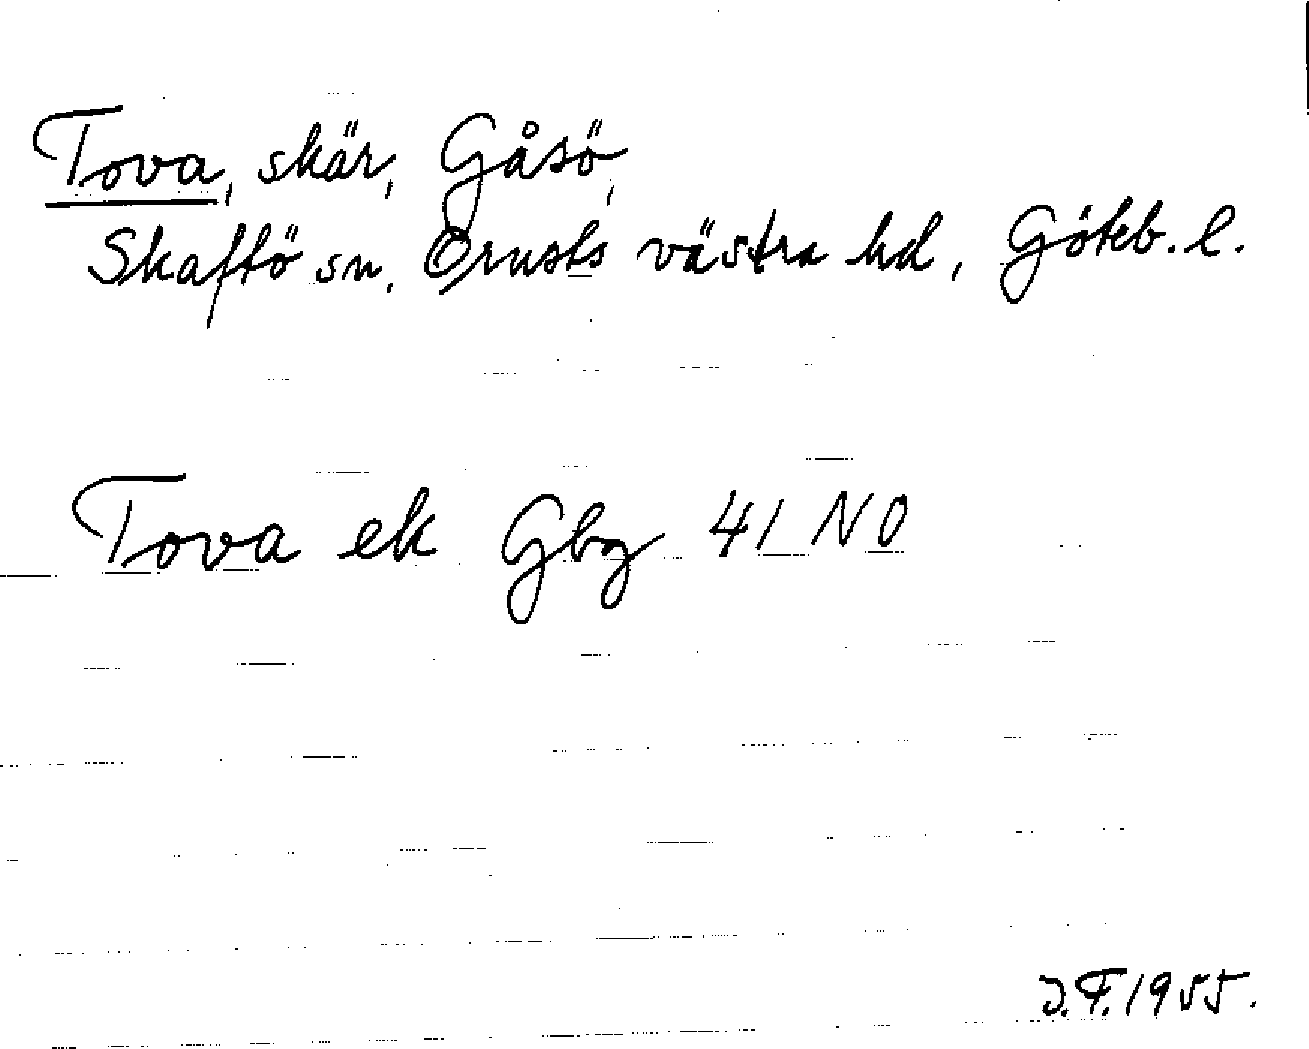 Tova, skär, Gåsö,
Skaftö sn, Orusts västra hd, Göteb. l.
Tova ek Gbg 41 NO
J.F. 1955.